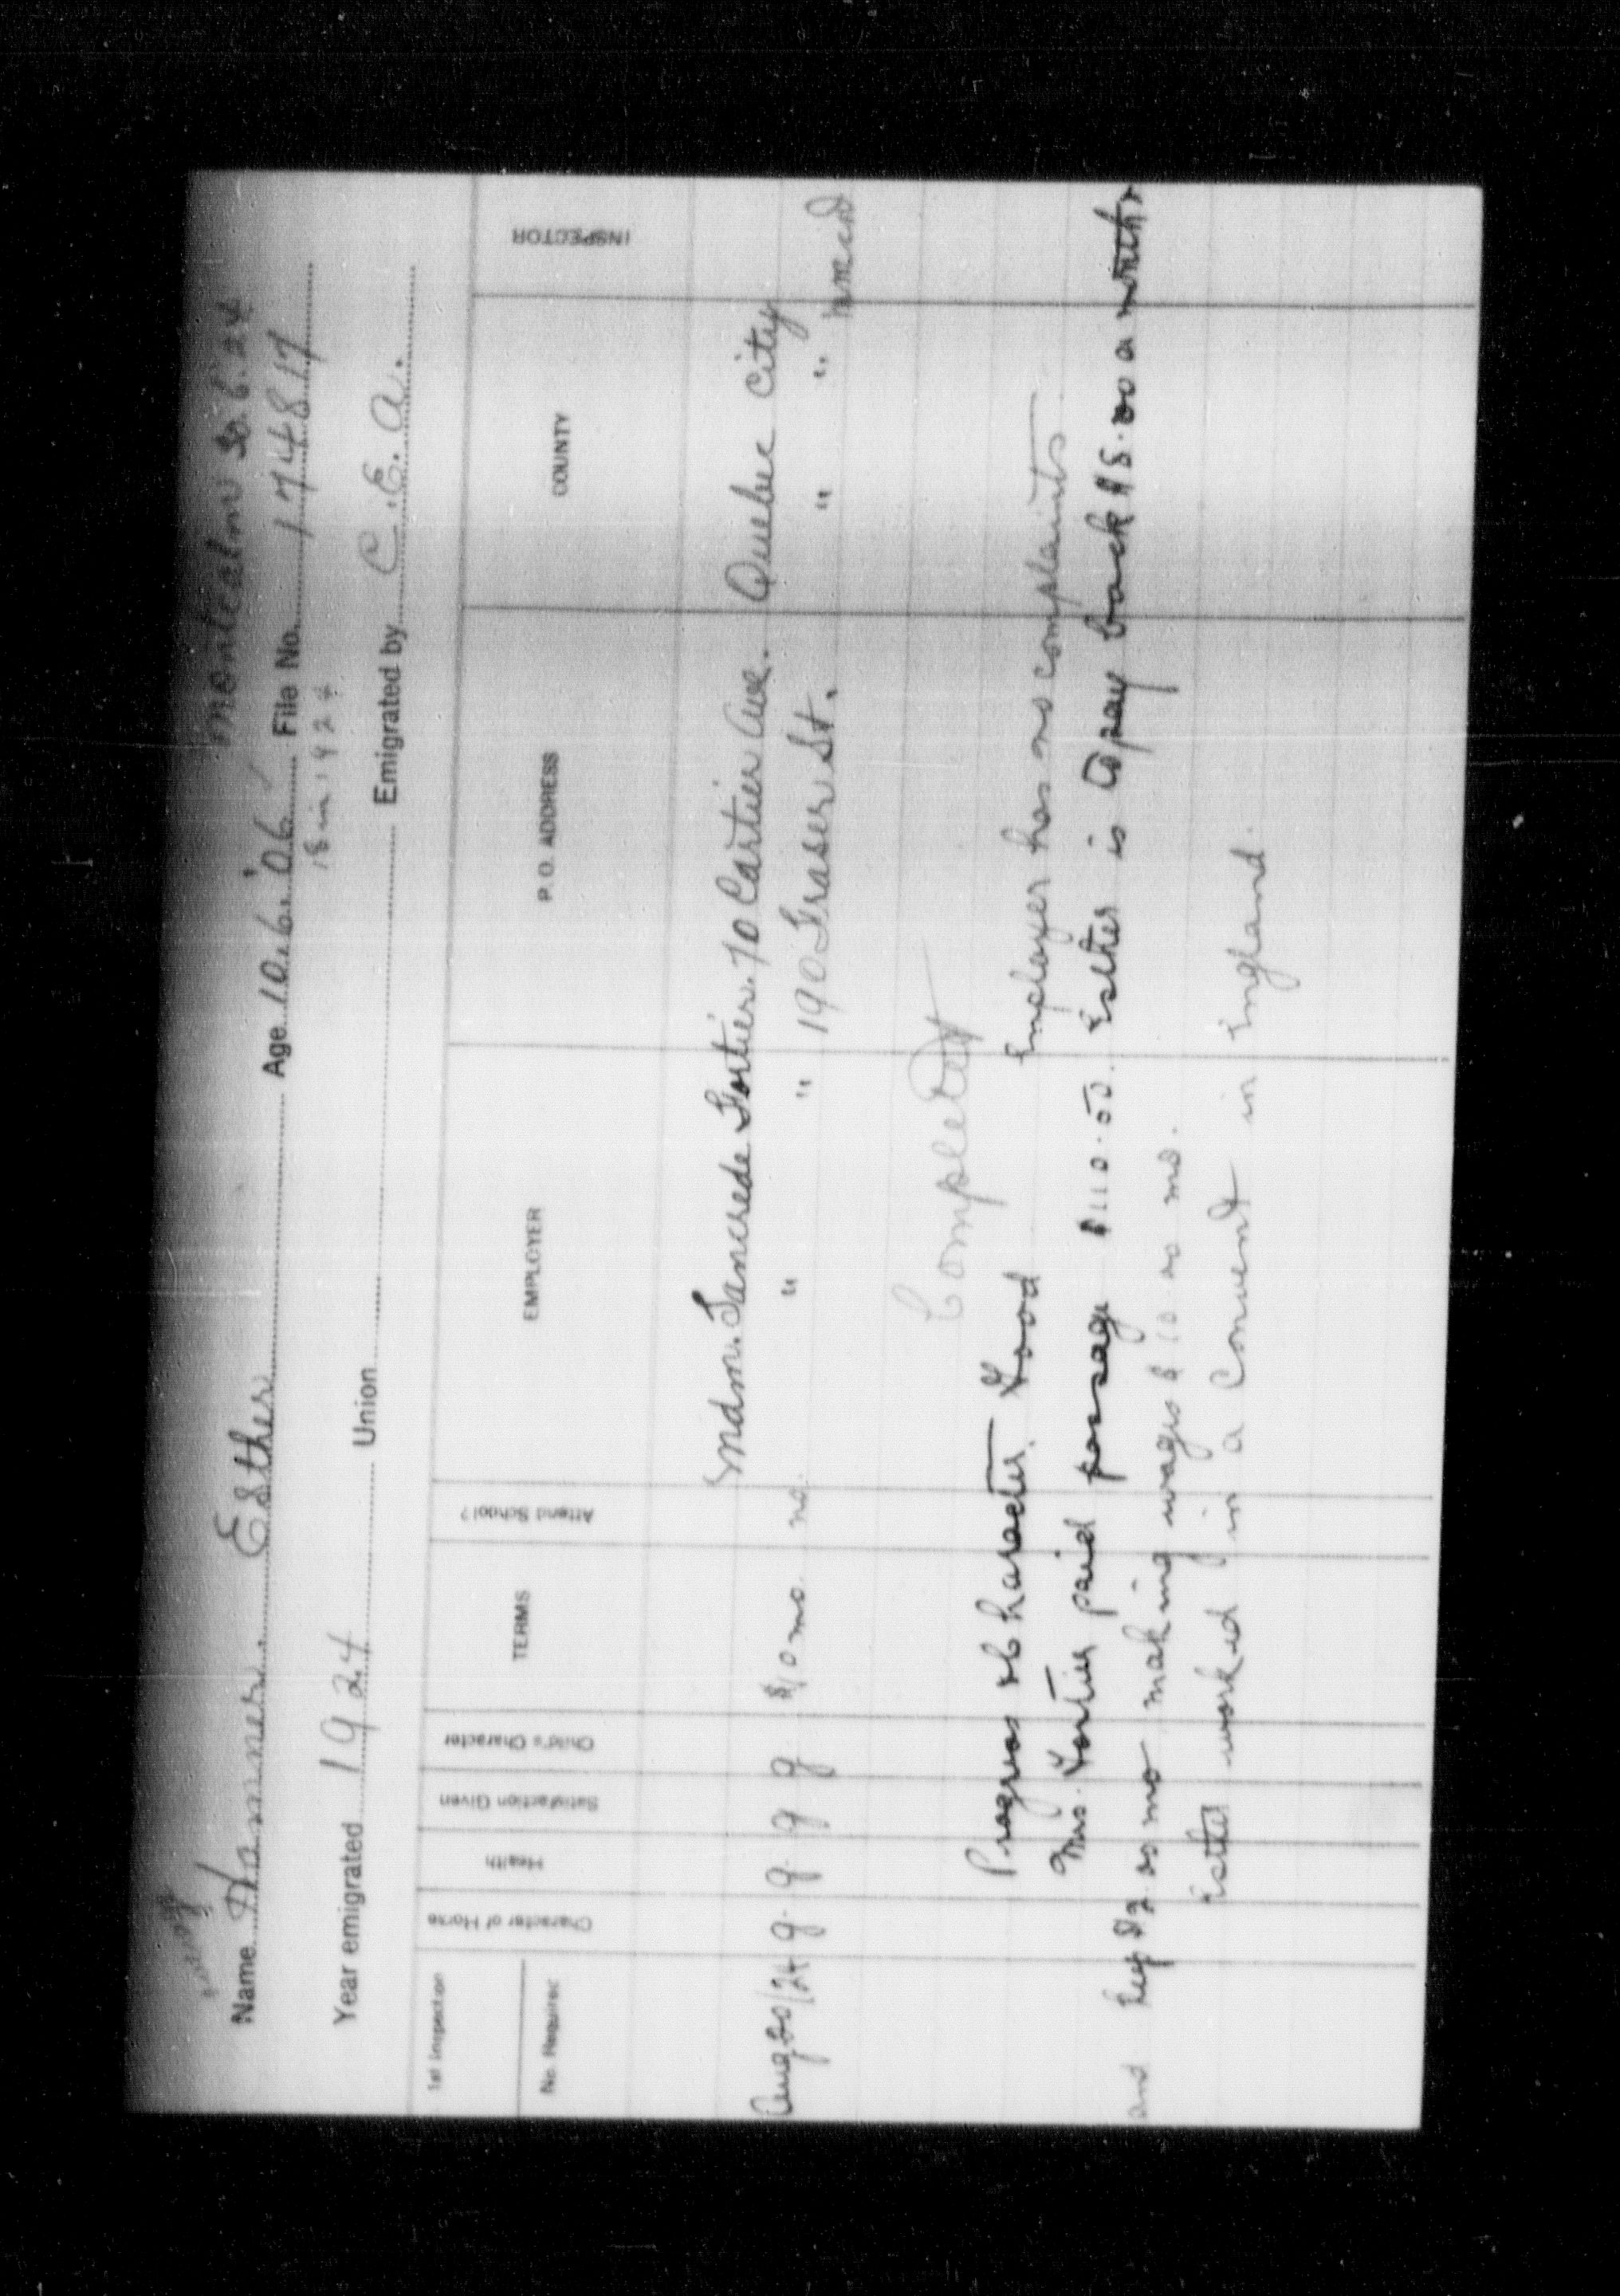 Montcalm 20.6.24
Name Hanner. Esther Age 10.6.'06 File No. 174817
18 in 1924
Year emigrated 1924 Union Emigrated by C.E.A.
1st Inspection
No. Required
Character of Home
Health
Satisfaction Given
Child's Character
TERMS
Attend School?
EMPLOYER
P. O. ADDRESS
COUNTY
INSPECTOR
Mdm. Tancrede Fortier. 70 Cartier Ave. Quebec City
Aug 20/24 g. g. g g $10 mo. no. " " 190 Fraser St. " "
Completed
Progress & character Good Employer has no complaints
Mrs. Fortier paid passage $110.00. Esther is to pay back $8.00 a month
and keep $2.00 mo making wages $10.00 mo.
Esther worked in a Convent in England.